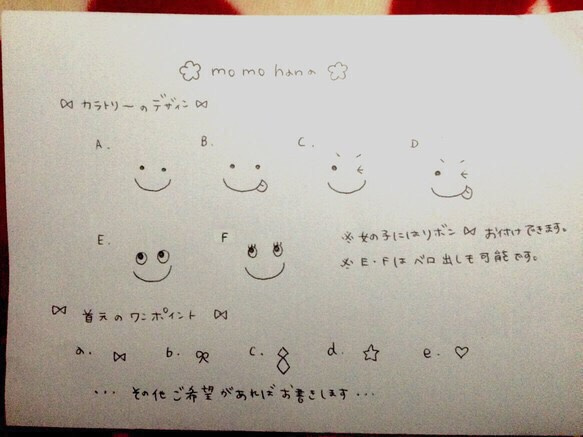 momohana
カラトリーのデザイン
A. B. C. D
E. F
※女の子にはリボン お付けできます。
※E・Fは ベロ出しも可能です。
首元のワンポイント
a. b. c. d. e.
... その他ご希望があればお書きします...